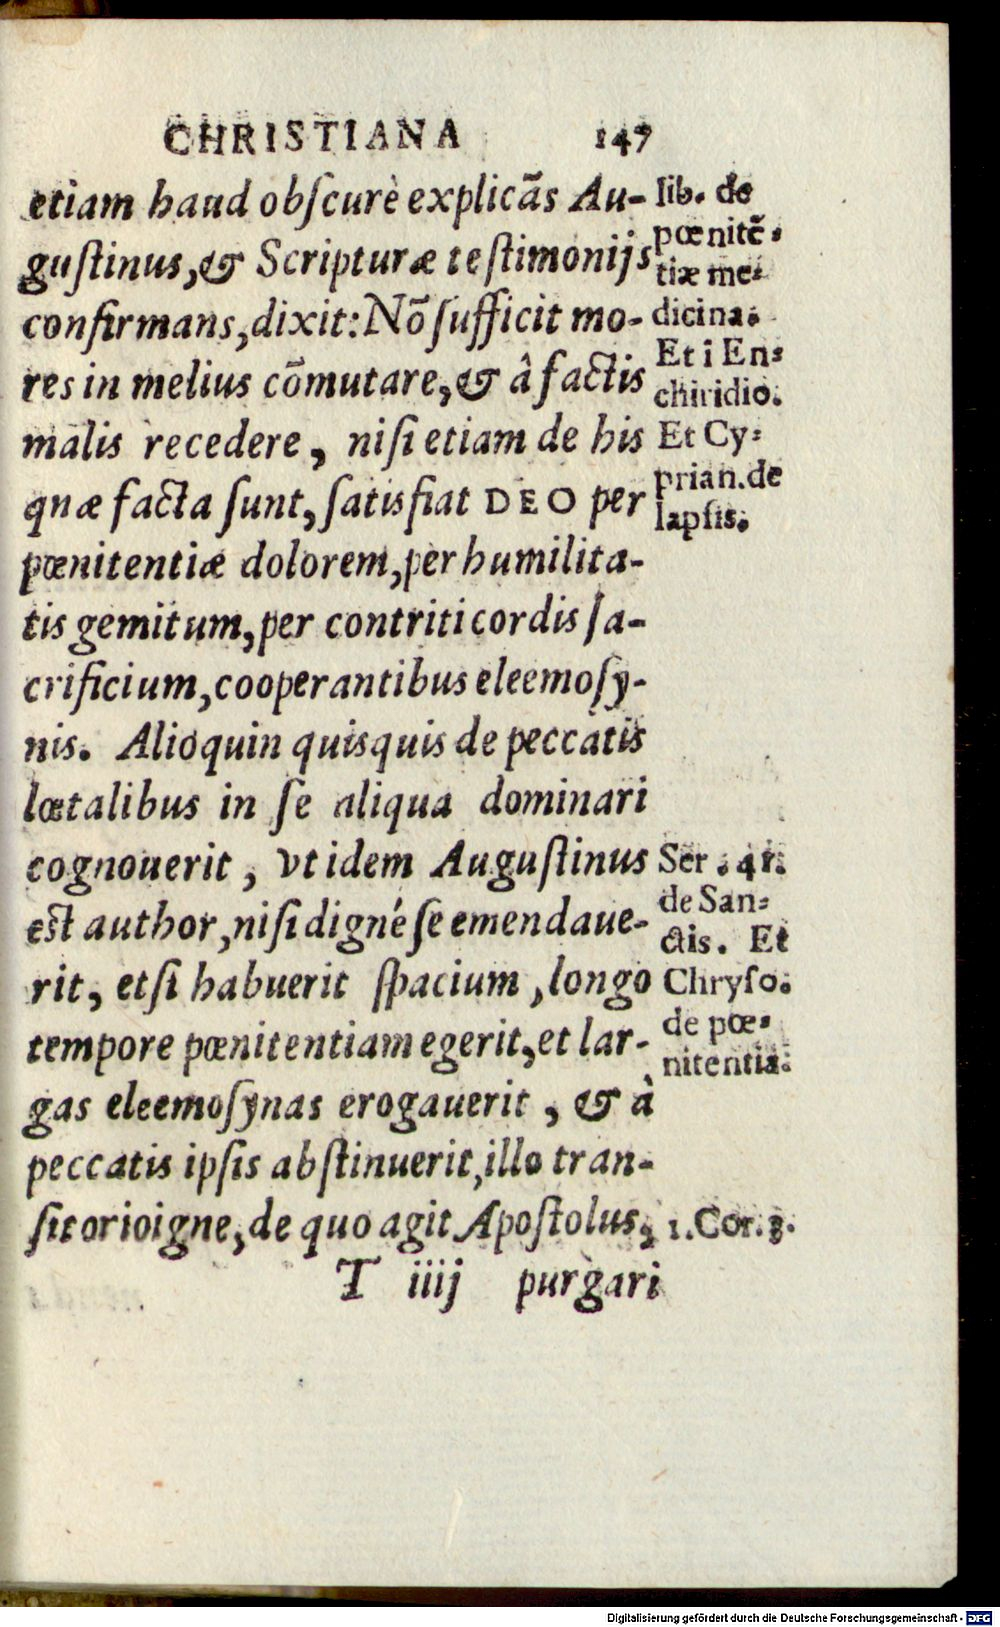 CHRISTIANA 147
etiam haud obſcurè explicãs Au-
guſtinus, & Scripturæ teſtimonijs
confirmans, dixit: Nõ ſufficit mo-
res in melius cõmutare, & â factis
malis recedere, niſi etiam de his
quæ facta ſunt, ſatisfiat DEO per
pœnitentiæ dolorem, per humilita-
tis gemitum, per contriti cordis ſa-
crificium, cooperantibus eleemoſy-
nis. Alioquin quisquis de peccatis
lœtalibus in ſe aliqua dominari
cognouerit, vt idem Auguſtinus
eſt author, niſi digné ſe emendaue-
rit, etſi habuerit ſpacium, longo
tempore pœnitentiam egerit, et lar-
gas eleemoſynas erogauerit, & à
peccatis ipſis abſtinuerit, illo tran-
ſitorio igne, de quo agit Apoſtolus,
T iiij purgari
lib. de
pœnitẽ-
tiæ me-
dicina.
Et ĩ En-
chiridio.
Et Cy-
prian. de
lapſis.
Ser. 41.
de San-
ctis. Et
Chryſo.
de pœ-
nitentia.
1. Cor. 3.
Digitalisierung gefördert durch die Deutsche Forschungsgemeinschaft - DFG